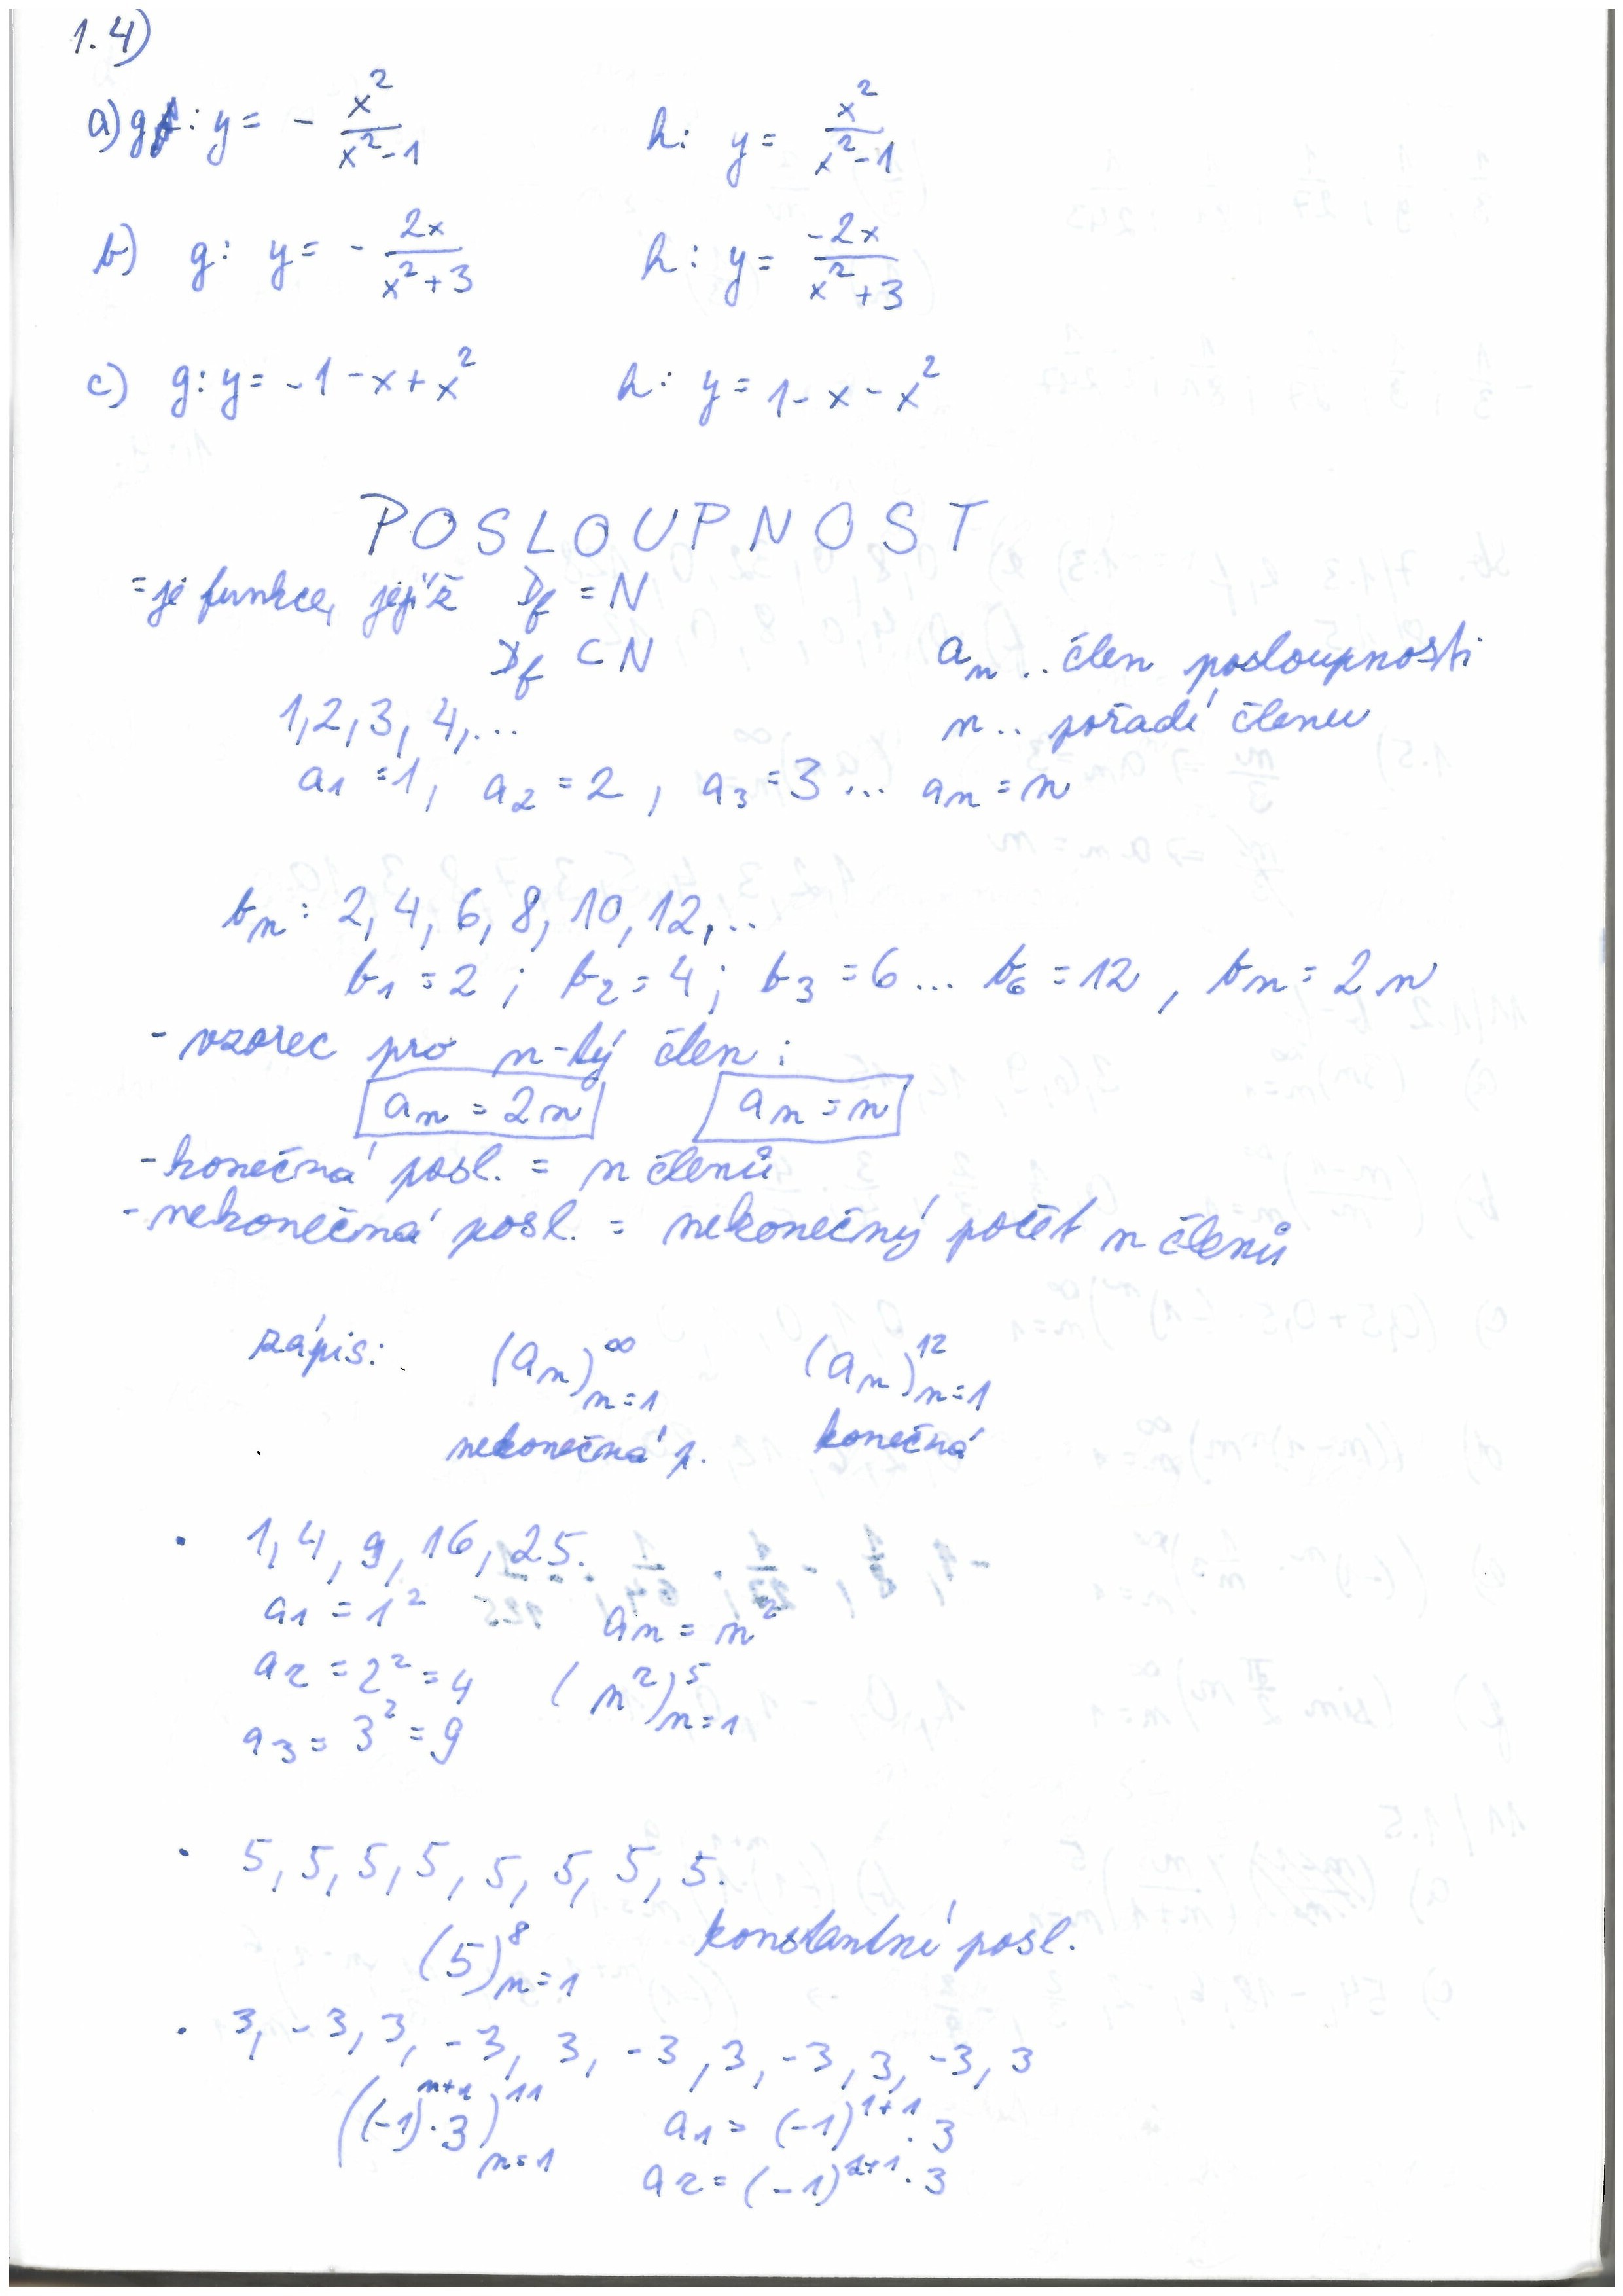 1.4)
a) g: y = - x²/(x²-1)    h: y = x²/(x²-1)
b) g: y = - 2x/(x²+3)    h: y = -2x/(x²+3)
c) g: y = -1 - x + x²    h: y = 1 - x - x²
POSLOUPNOST
= je funkce, jejíž Df = N
Df ⊂ N    an .. člen posloupnosti
1, 2, 3, 4, ...    n .. pořadí členu
a1 = 1, a2 = 2, a3 = 3 ... an = n
bn: 2, 4, 6, 8, 10, 12, ..
b1 = 2 ; b2 = 4 ; b3 = 6 ... b6 = 12 , bn = 2n
- vzorec pro n-tý člen :
an = 2n    an = n
- konečná posl. = n členů
- nekonečná posl. = nekonečný počet n členů
zápis: (an)^∞ n=1    (an)^12 n=1
nekonečná p.    konečná
· 1, 4, 9, 16, 25.
a1 = 1²    an = n²
a2 = 2² = 4    (n²)^5 n=1
a3 = 3² = 9
· 5, 5, 5, 5, 5, 5, 5, 5.
(5)^8 n=1    konstantní posl.
· 3, -3, 3, -3, 3, -3, 3, -3, 3, -3, 3
((-1)^n+1 · 3)^11 n=1    a1 = (-1)^1+1 · 3
a2 = (-1)^2+1 · 3